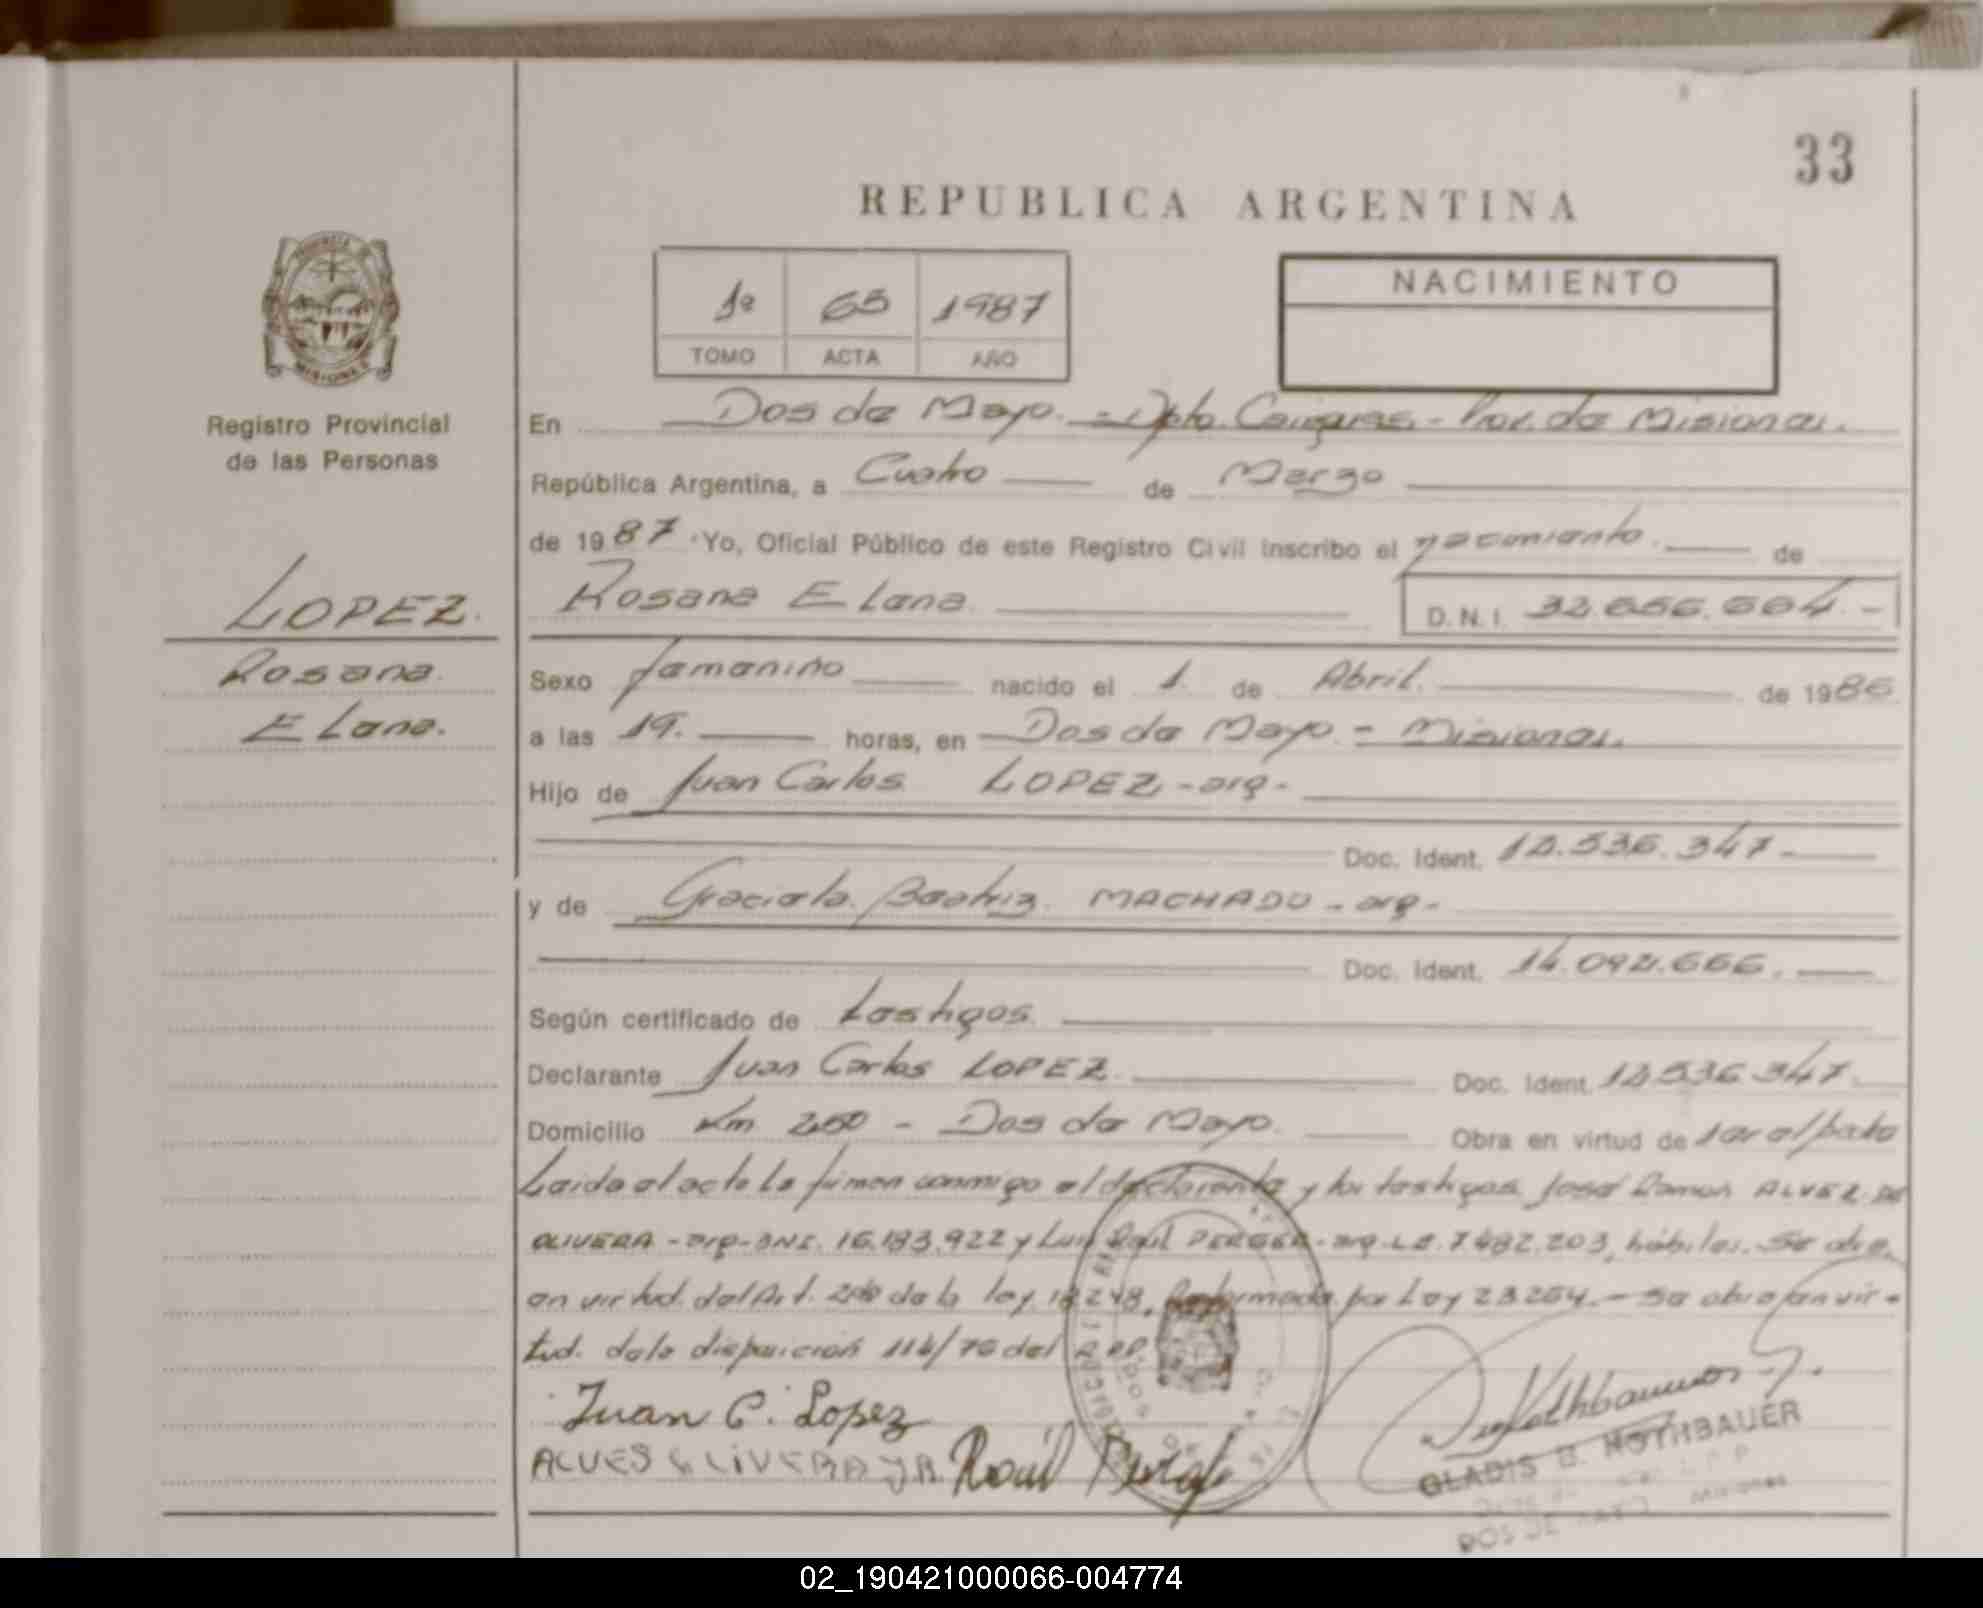 33
REPUBLICA ARGENTINA
1º 65 1987
TOMO ACTA AÑO
NACIMIENTO
PROVINCIA DE
MISIONES
Registro Provincial
de las Personas
LOPEZ.
Rosana
Elena.
En Dos de Mayo. - Dpto. Cainguas. - Prov. de Misiones.
República Argentina, a Cuatro de Marzo
de 1987 Yo, Oficial Público de este Registro Civil inscribo el nacimiento. de
Rosana Elena D.N.I. 32.656.664.-
Sexo femenino nacido el 1 de Abril. de 1986
a las 19. horas, en Dos de Mayo. - Misiones.
Hijo de Juan Carlos LOPEZ - arg -
Doc. Ident. 12.536.347 -
y de Graciela Beatriz MACHADO - arg -
Doc. Ident. 14.092.666.
Según certificado de testigos
Declarante Juan Carlos LOPEZ. Doc. Ident. 12.536.347.
Domicilio Km 250 - Dos de Mayo. Obra en virtud de ser el padre
Leida el acta la firman conmigo el declarante y los testigos José Ramon ALVEZ DE
OLIVERA - arg - DNI. 16.183.922 y Luis Raúl - arg - L.E. 7482.203, hábiles. Se
en virtud. del Art. de la ley 18248. Reformada por Ley 23264. - Se en vir-
tud. de la disposición 114/76 del
Juan C. Lopez
ALVES OLIVERA J R. Raúl
GLADIS B. ROTHBAUER
DOS DE MAYO Misiones
02_190421000066-004774